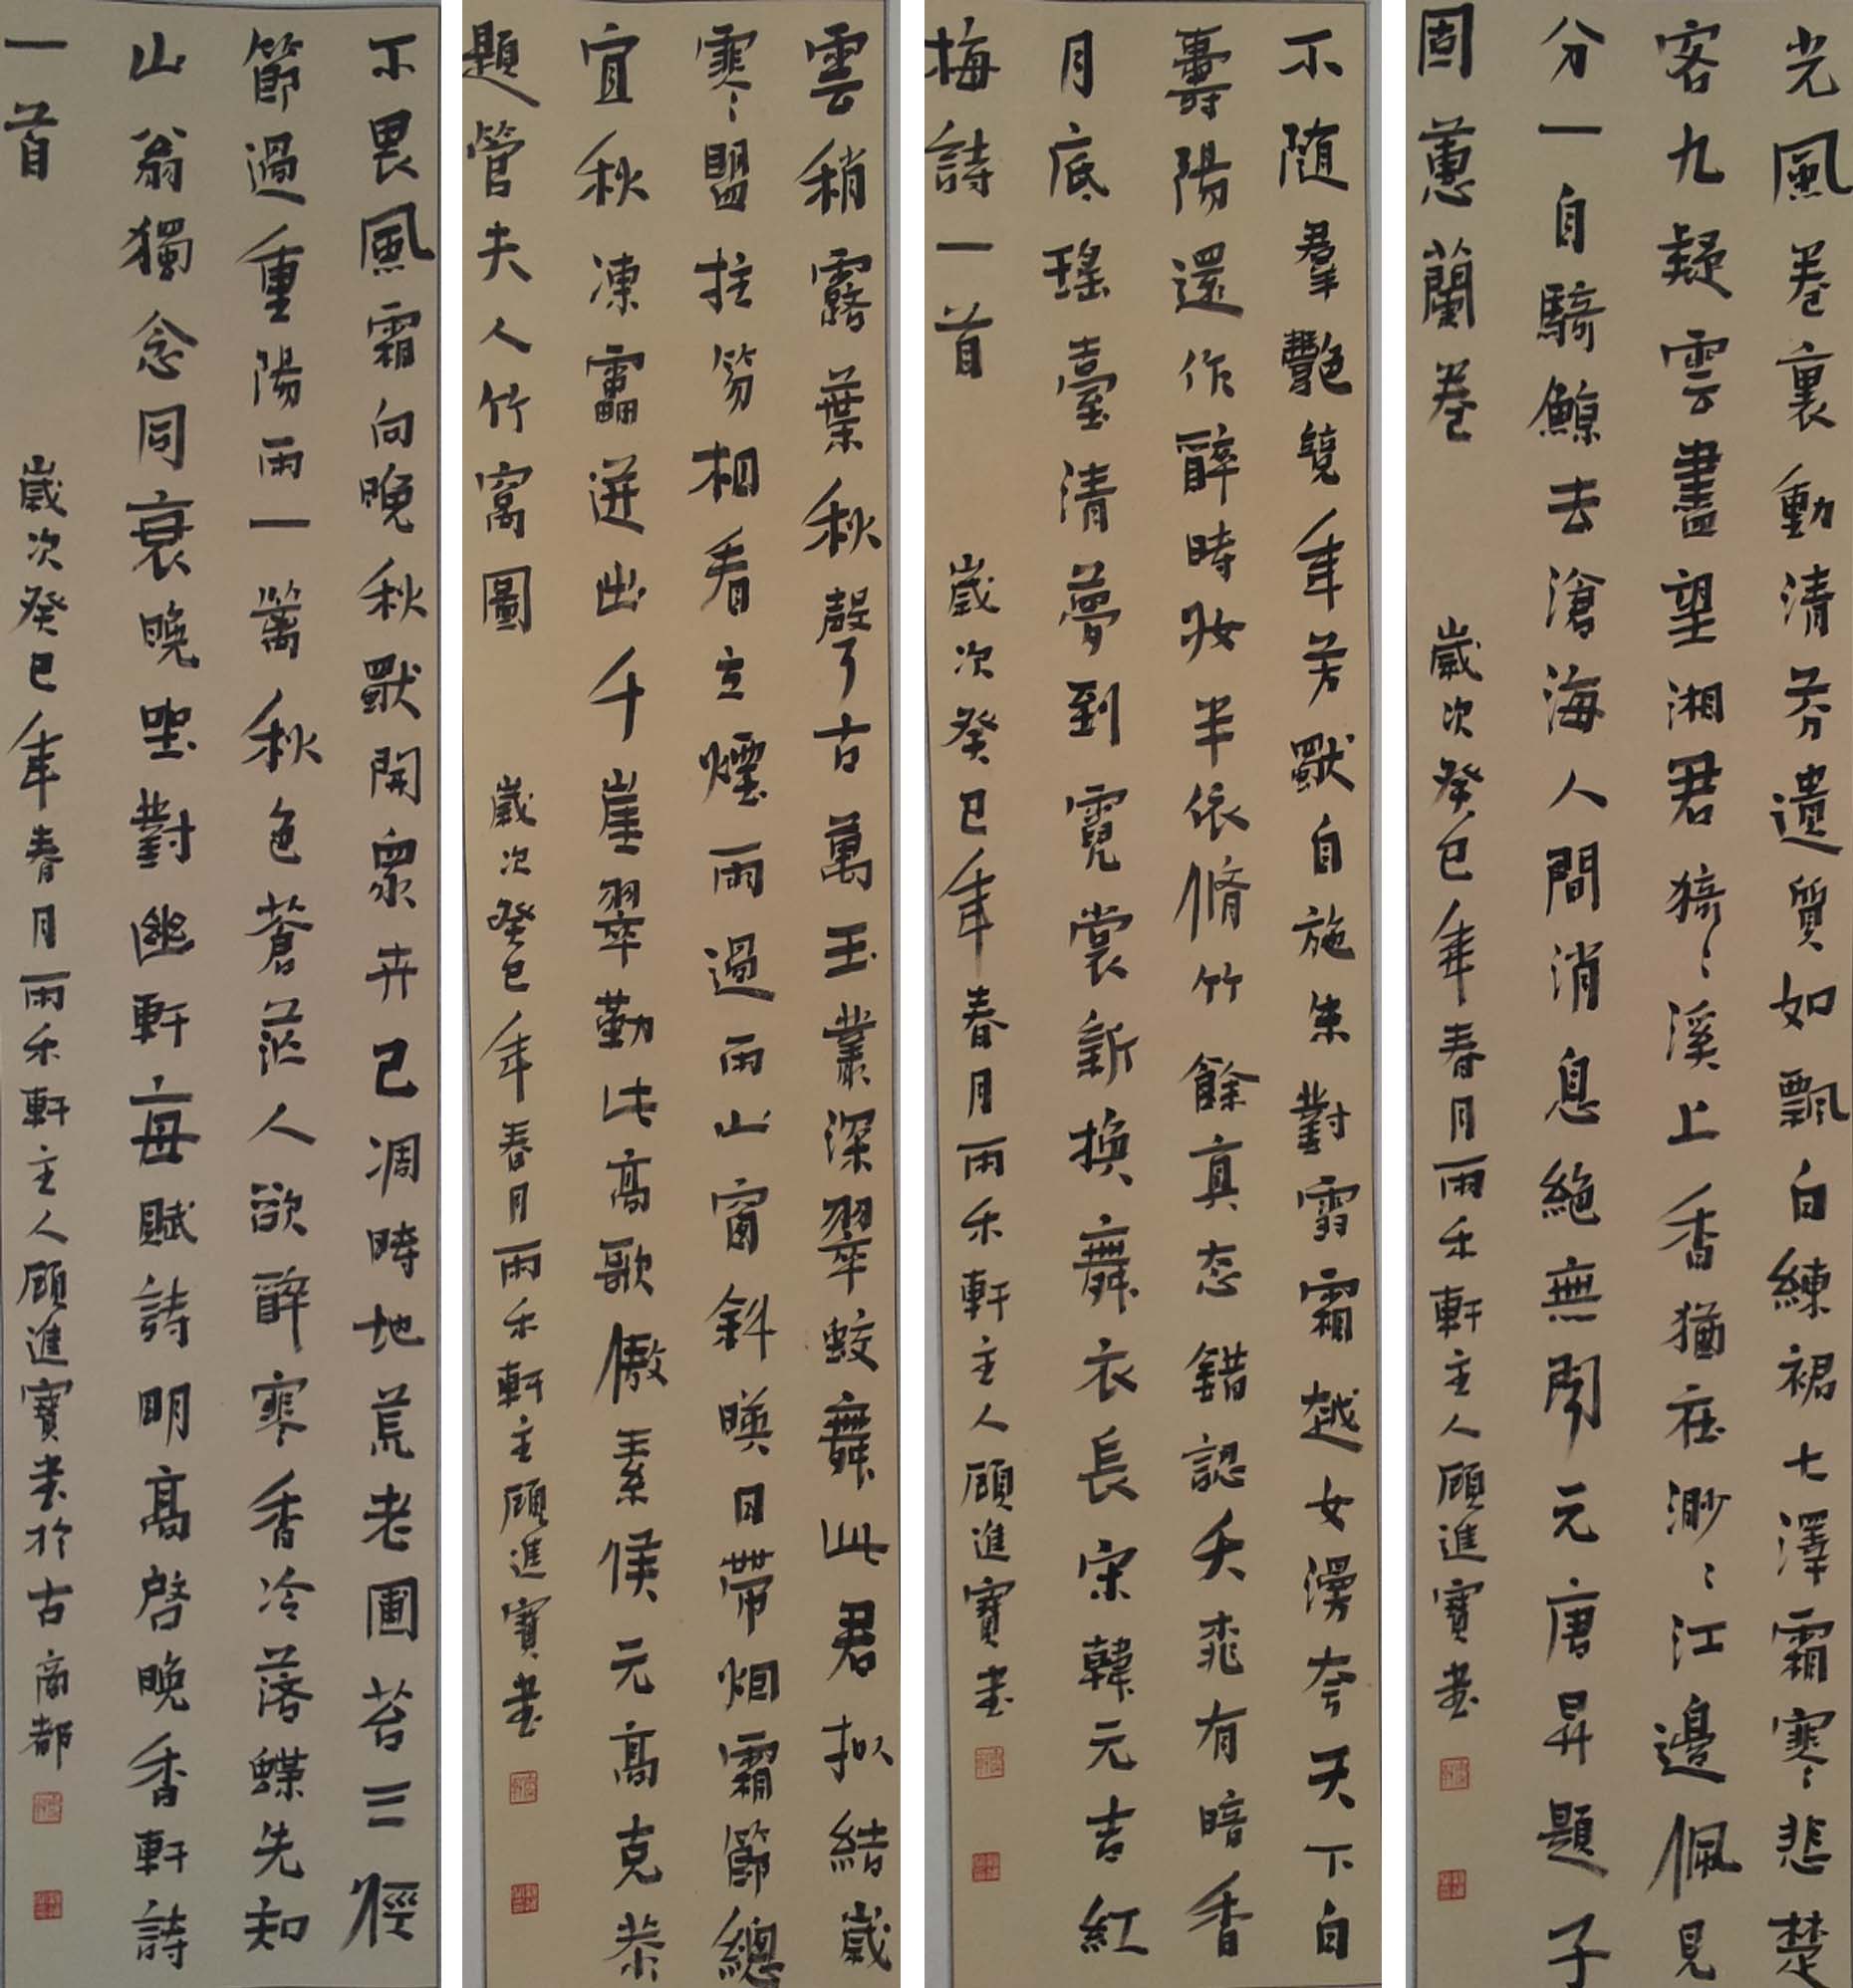 光風卷裏動清芬遺質如飄白練裙七澤霜寒悲楚
客九疑雲盡望湘君猗〻溪上香猶在渺〻江邊佩見
分一自騎鯨去滄海人間消息絕無聞元唐昇題子
固蕙蘭卷 歲次癸巳年春月雨禾軒主人顧進寶書
不隨羣艷競年芳獨自施朱對雪霜越女漫夸天下白
壽陽還作醉時妝半依脩竹餘真态錯認夭桃有暗香
月底瑤臺清夢到霓裳新換舞衣長宋韓元吉紅
梅詩一首 歲次癸巳年春月雨禾軒主人顧進寶書
雲稍露葉秋聲了古萬玉叢深翠蛟舞此君拟結歲
寒盟拄笏相看立煙雨過雨山窗斜暎日帶烟霜節總
宜秋凍雷迸出千崖翠勤此高歌傲素侯元高克恭
題管夫人竹窩圖 歲次癸巳年春月雨禾軒主顧進寶書
不畏風霜向晚秋獨開眾卉已凋時地荒老圃苔三徑
節過重陽雨一籬秋色蒼茫人欲醉寒香冷落蝶先知
山翁獨念同衰晚坐對幽軒每賦詩明高啓晚香軒詩
一首 歲次癸巳年春月雨禾軒主人顧進寶書於古商都